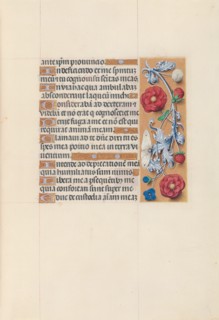 ante ipm
In deficiendo ex me spiritus
meus et tu cognovisti semitas meas
In via hac qua ambulabā
absconderunt laqueū michi
Considerabā ad dexteram et
videbā et non erat qui cognosceret me
fuga a me et nō est qui
requirat animā meam
Clamavi ad te dñe dixi tu es
spes mea portio mea in terra vi
ventium
Intende ad deprecationē meā
quia humiliatus sum nimis
Libera me a persequētibus me
quia confortati sunt super me
Educ de custodia aīam meam